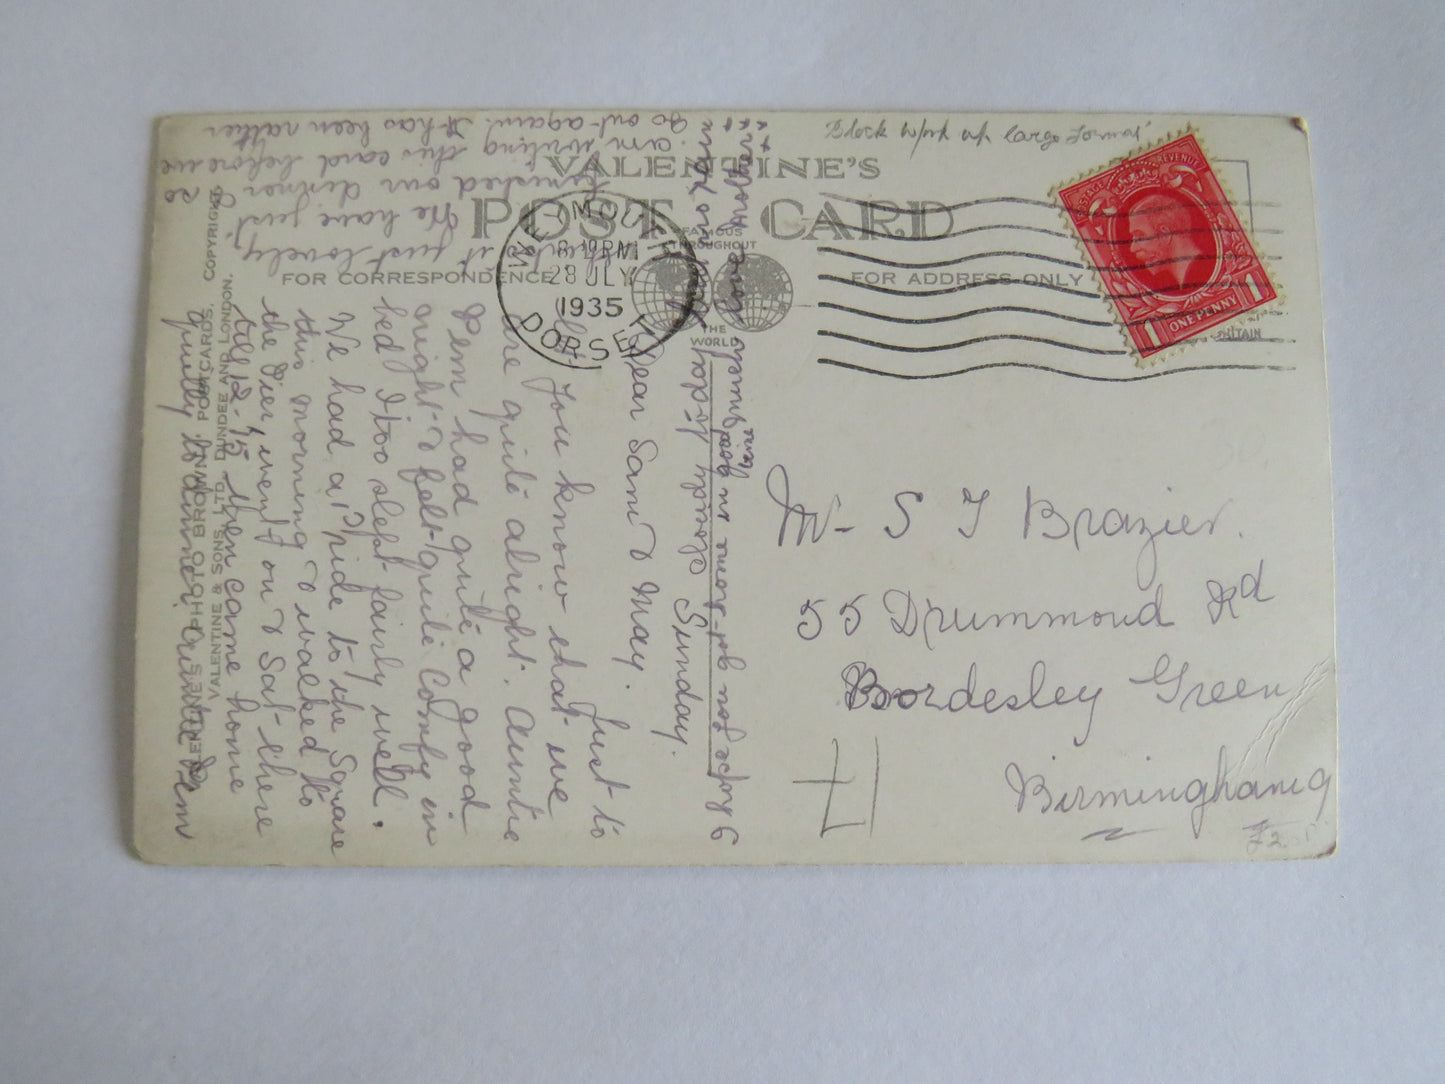 VALENTINE'S
POST CARD
FAMOUS
THROUGHOUT
THE
WORLD
FOR CORRESPONDENCE
FOR ADDRESS ONLY
WEYMOUTH
8 PM
28 JLY
1935
DORSET
POSTAGE
REVENUE
1 ONE PENNY 1
VALENTINE'S PHOTO BROWN POSTCARDS. COPYRIGHT.
VALENTINE & SONS, LTD. DUNDEE AND LONDON.
Mr S J Brazier.
55 Drummond Rd
Bordesley Green
Birmingham 9
Sunday.
Dear Sam & May.
Just to
let you know that we
are quite alright. Auntie
Pem had quite a good
night & felt quite comfy in
bed I too slept fairly well.
We had a 1d ride to the Square
this morning & walked to
the Pier, went on & Sat there
till 12-15 then came home
to dinner, Auntie Pem
it just lovely,
We have just
finished our dinner & so
am writing this card before we
go out again. It has been rather
cloudy today but no rain
Shope you got home in good
time
much love Mother